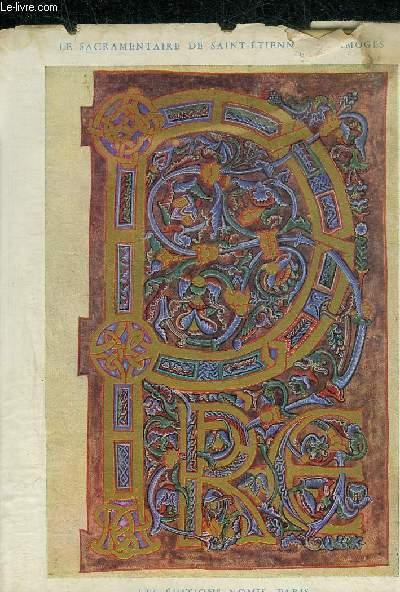 Le-livre.com
LE SACRAMENTAIRE DE SAINT-ÉTIENN MOGES
PRE
LES ÉDITIONS NOMIS, PARIS